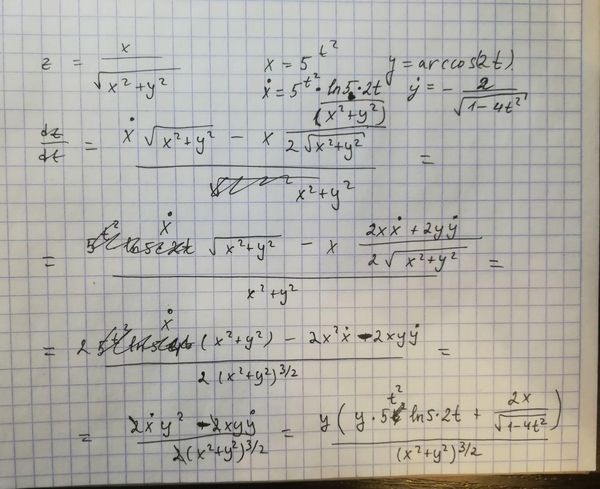 z = x / √(x² + y²)   x = 5^(t²)   y = arccos(2t)
ẋ = 5^(t²) · ln5 · 2t   ẏ = - 2 / √(1 - 4t²)
dz/dt = (ẋ √(x² + y²) - x (x² + y²) / (2√(x² + y²))) / (x² + y²) =
= (ẋ √(x² + y²) - x (2xẋ + 2yẏ) / (2√(x² + y²))) / (x² + y²) =
= (2ẋ (x² + y²) - 2x²ẋ - 2xyẏ) / (2(x² + y²)^(3/2)) =
= (2ẋy² - 2xyẏ) / (2(x² + y²)^(3/2)) = y(y · 5^(t²) ln5 · 2t + 2x / √(1 - 4t²)) / (x² + y²)^(3/2)